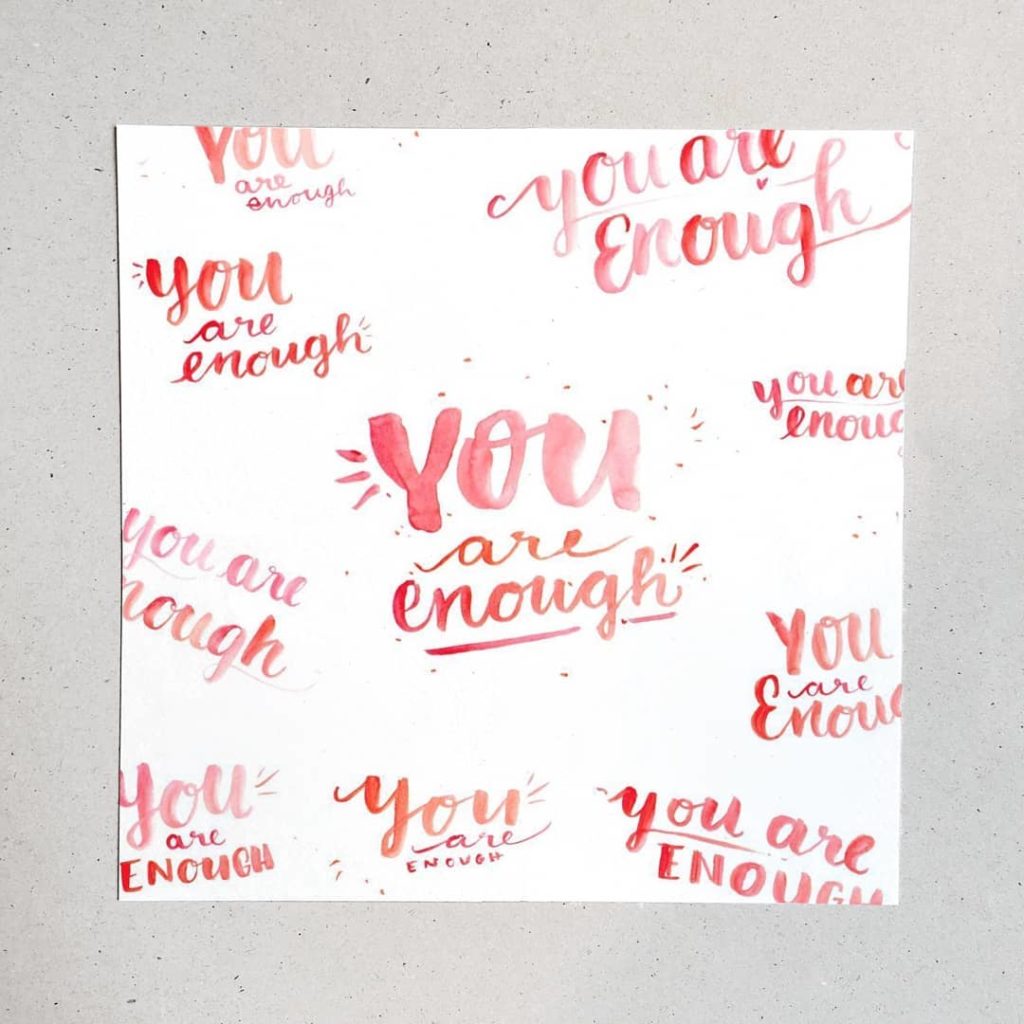 You
are
enough
you are
Enough
you
are
enough
you are
enoug
You
are
enough
you are
nough
You
are
Enoug
you
are
ENOUGH
you
are
ENOUGH
you are
ENOUGH